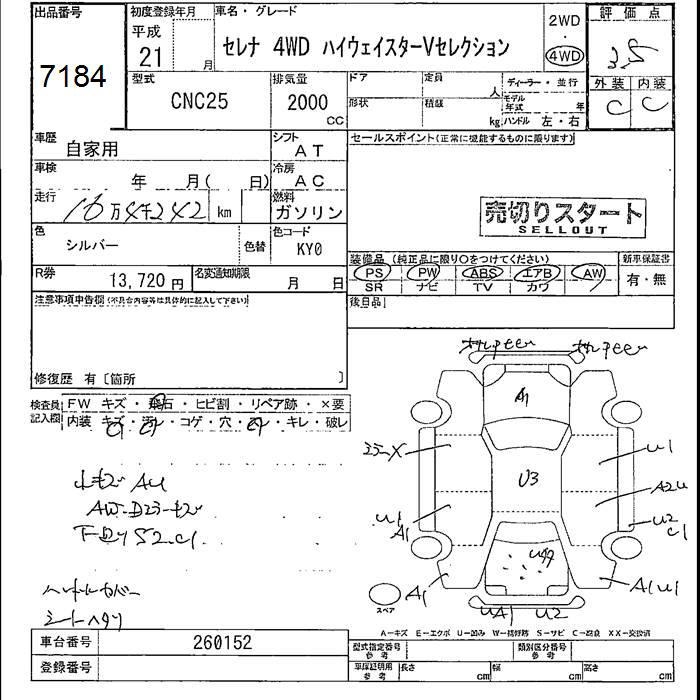 出品番号
7184
初度登録年月
平成
21 月
車名・グレード
セレナ 4WD ハイウェイスターVセレクション
2WD
・
4WD
評価点
3.5
外装 内装
C C
型式
CNC25
排気量
2000
CC
ドア
形状
定員
人
積載
kg
ディーラー・並行
モデル年式 年
ハンドル 左・右
車歴
自家用
シフト
AT
車検
年 月( 日)
冷房
AC
走行
16万4千242 km
燃料
ガソリン
色
シルバー
色替
色コード
KY0
R券
13,720円
名変通知期限
月 日
セールスポイント(正常に機能するものに限ります)
売切りスタート
SELLOUT
装備品(純正品に限り○をつけてください)
PS PW ABS エアB AW
SR ナビ TV カワ
新車保証書
有・無
後日品
注意事項申告欄(不具合内容等は具体的に記入して下さい)
修復歴 有〔箇所 〕
検査員記入欄
FW キズ・飛石・ヒビ割・リペア跡・×要
内装 キズ・汚レ・コゲ・穴・
・キレ・破レ
A1
U3
U1
A2U
U2
C1
U1
A1
A1
UA1 U2
スペア
A-キズ E-エクボ U-凹み W-補修跡 S-サビ C-腐食 XX-交換済
車台番号
260152
登録番号
型式指定番号
参考
類別区分番号
参考
車庫証明用
参考
長さ cm 幅 cm 高さ cm